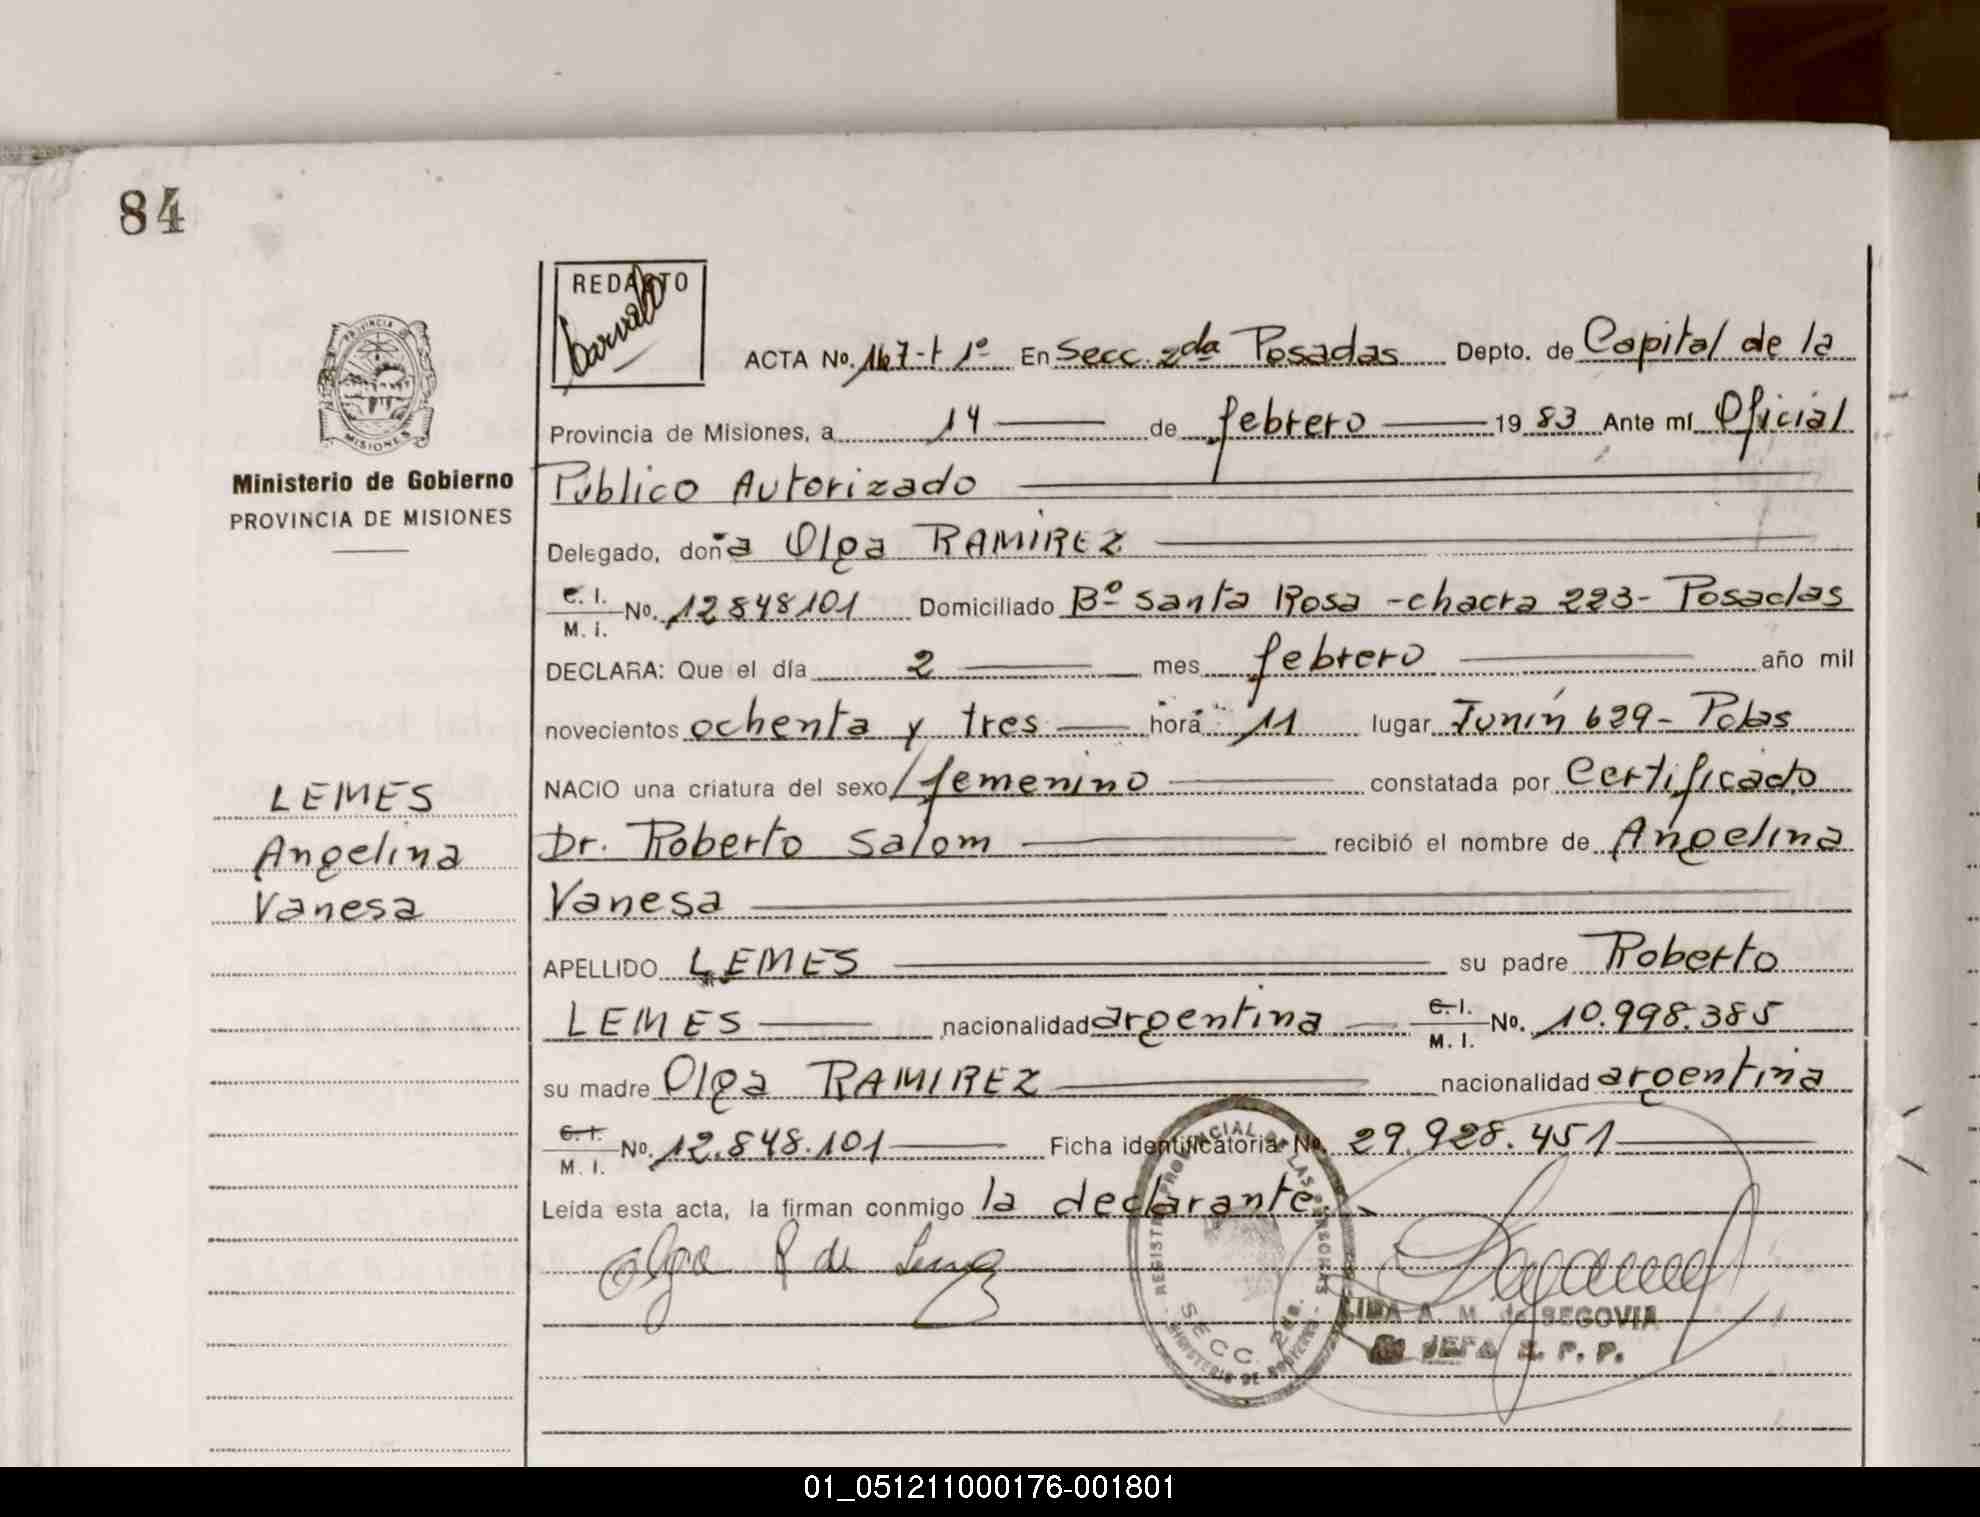 84
REDACTO
ACTA No. 167-t 1º En Secc. 2da Posadas Depto. de Capital de la
Provincia de Misiones, a 14 de febrero 1983 Ante mí Oficial
Ministerio de Gobierno
PROVINCIA DE MISIONES
Público Autorizado
Delegado, doña Olga RAMIREZ
C. I.
M. I. No. 12848101 Domiciliado Bº Santa Rosa - chacra 223 - Posadas
DECLARA: Que el día 2 mes febrero año mil
novecientos ochenta y tres hora 11 lugar Junín 629 - Pdas
NACIO una criatura del sexo femenino constatada por Certificado
LEMES
Angelina
Vanesa
Dr. Roberto Salom recibió el nombre de Angelina
Vanesa
APELLIDO LEMES su padre Roberto
LEMES nacionalidad argentina C. I.
M. I. No. 10.998.385
su madre Olga RAMIREZ nacionalidad argentina
C. I.
M. I. No. 12.848.101 Ficha identificatoria No. 29.928.451
Leída esta acta, la firman conmigo la declarante.
Olga R de
REGISTRO PROVINCIAL DE LAS PERSONAS
SECC. 2da.
MINISTERIO DE GOBIERNO
LIDA A. M. de SEGOVIA
JEFA R. P. P.
PROVINCIA DE
MISIONES
01_051211000176-001801